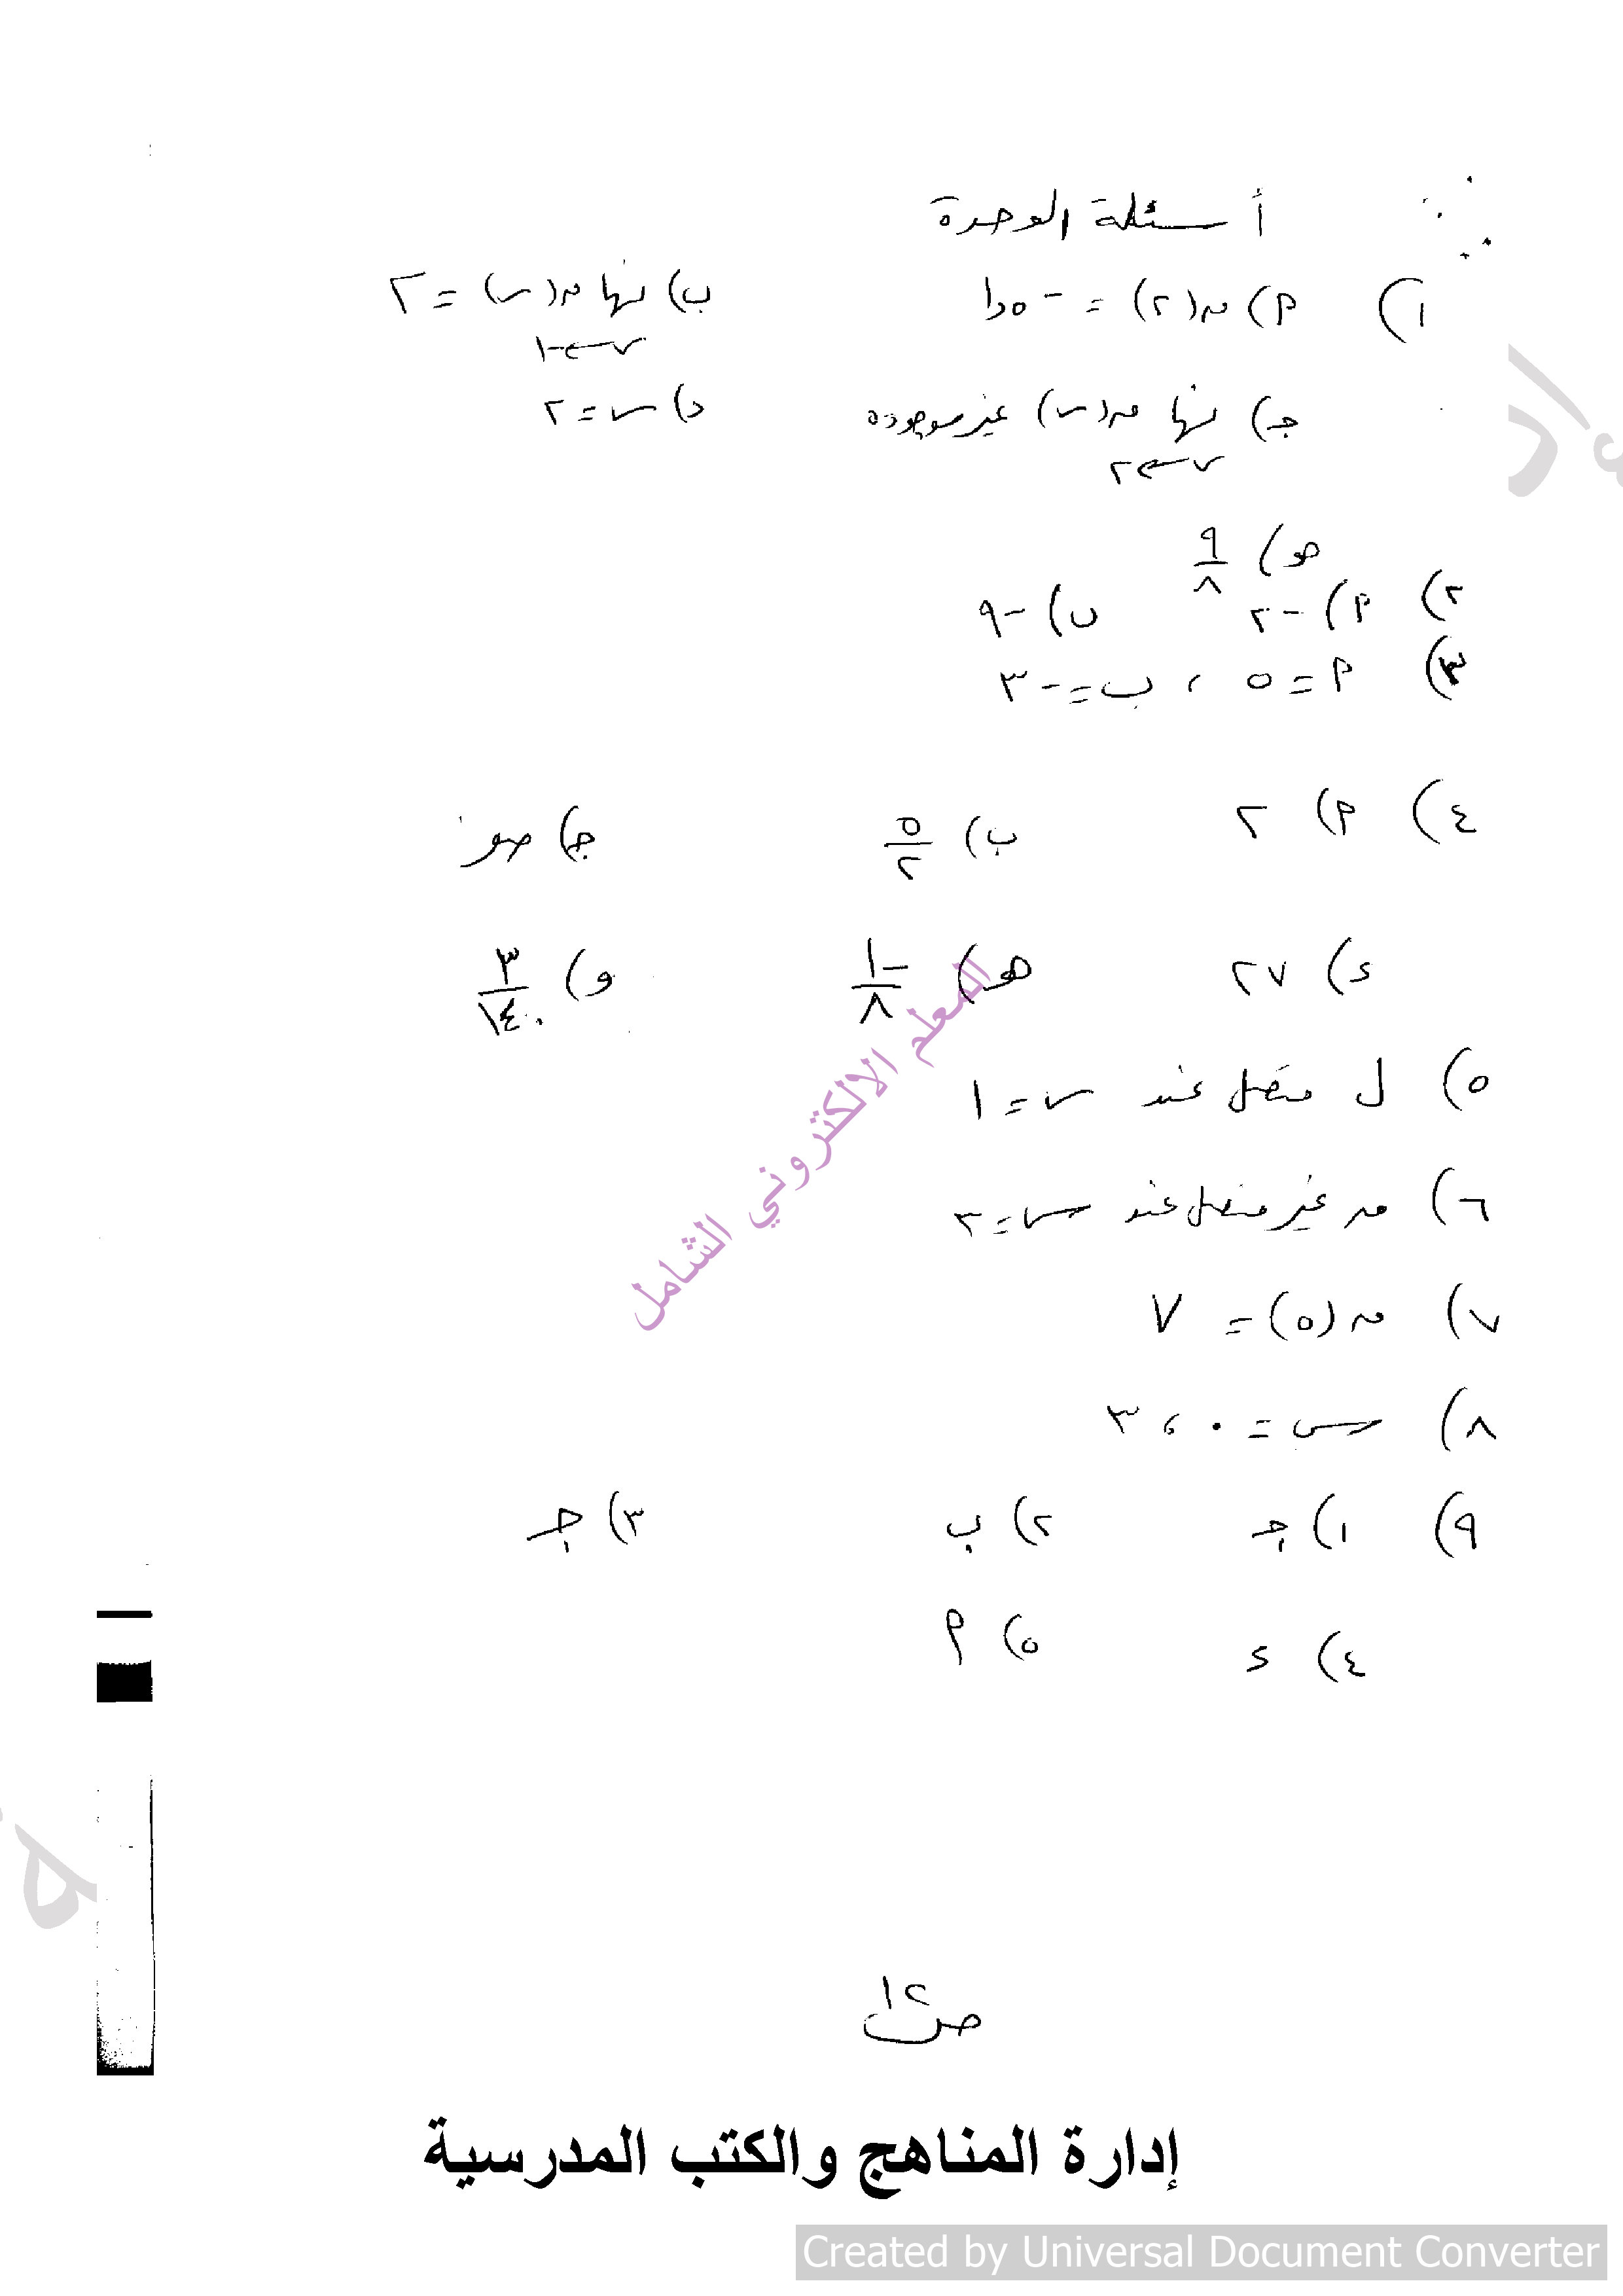 أسئلة الوحدة
١) P) ق(٢) = -١,٥ ب) نها ق(س) = ٢
س←-١
جـ) نها ق(س) غير موجودة د) س = ٢
س←٢
هـ) ٩/٨
٢) P) -٢ ب) -٩
٣) P = ٥ ، ب = -٣
٤) P) ٢ ب) ٥/٢ جـ) صفر
ء) ٢٧ هـ) -١/٨ و) ٣/١٤٠
٥) ل متصل عند س = ١
٦) ق غير متصل عند س = ٢
٧) ق(٥) = ٧
٨) س = ٠ ، ٣
٩) ١) جـ ٢) ب ٣) جـ
٤) ء ٥) P
المعلم الالكتروني الشامل
ص ١٢
إدارة المناهج والكتب المدرسية
Created by Universal Document Converter